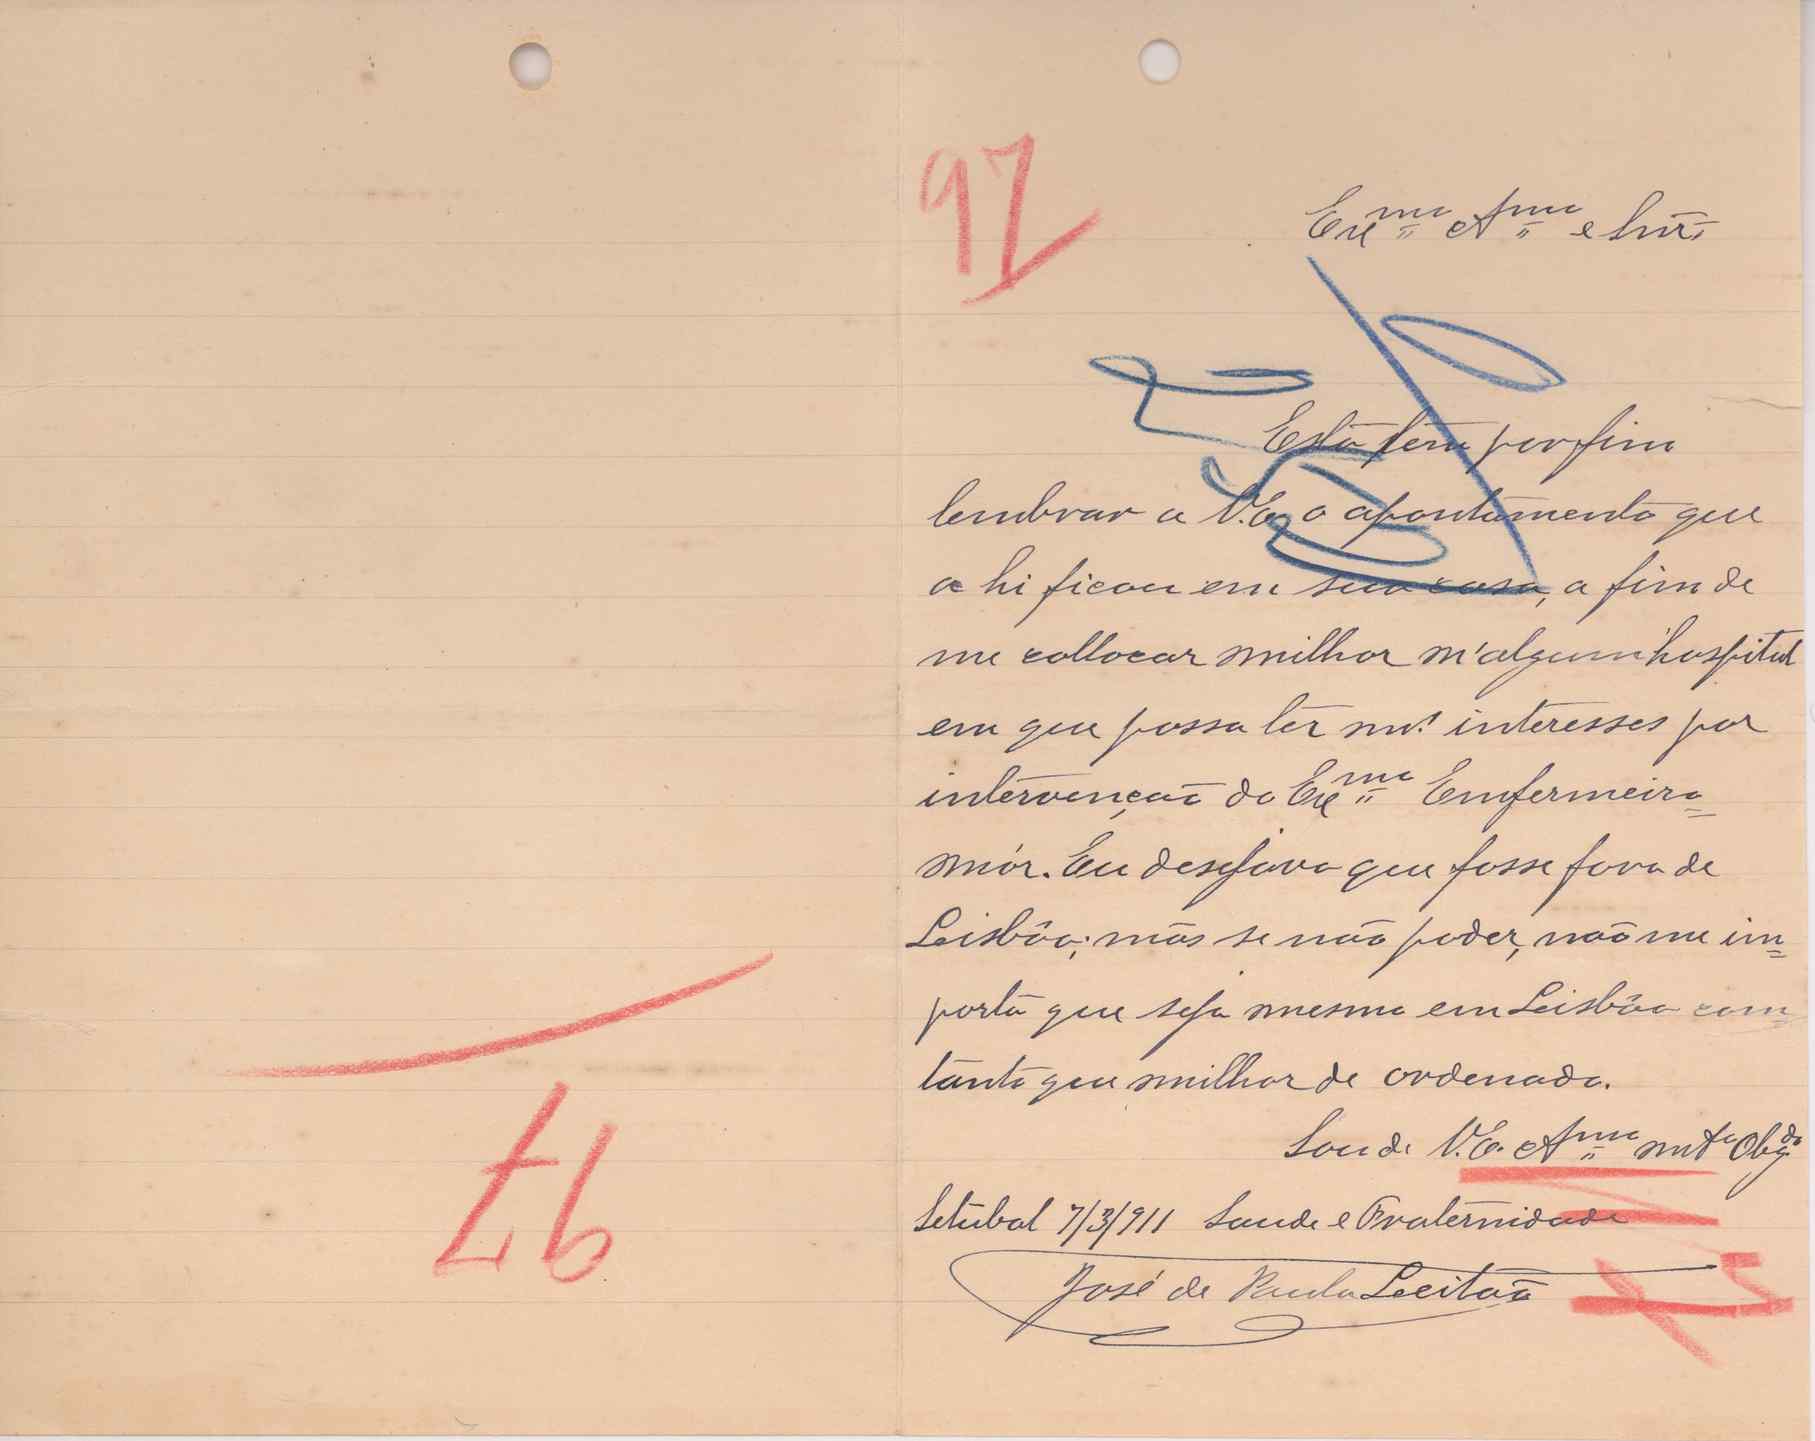 97
Exmo Amo e Snr.
Esta tem por fim
lembrar a V. Ex o apontamento que
a hi ficou em sua casa, a fim de
me collocar milhor n'algum hospital
em que possa ter mt interesses por
intervenção do Exmo Emfermeiro=
mór. Eu desejava que fosse fora de
Leisbôa; mas se não poder, não me im=
porta que seja mesmo em Leisbôa com
tanto que milhor de ordenado.
Sou de V. Ex Amo mto Obgdo
Setubal 7/3/911 Saude e Fraternidade
José de Paula Leitão
97